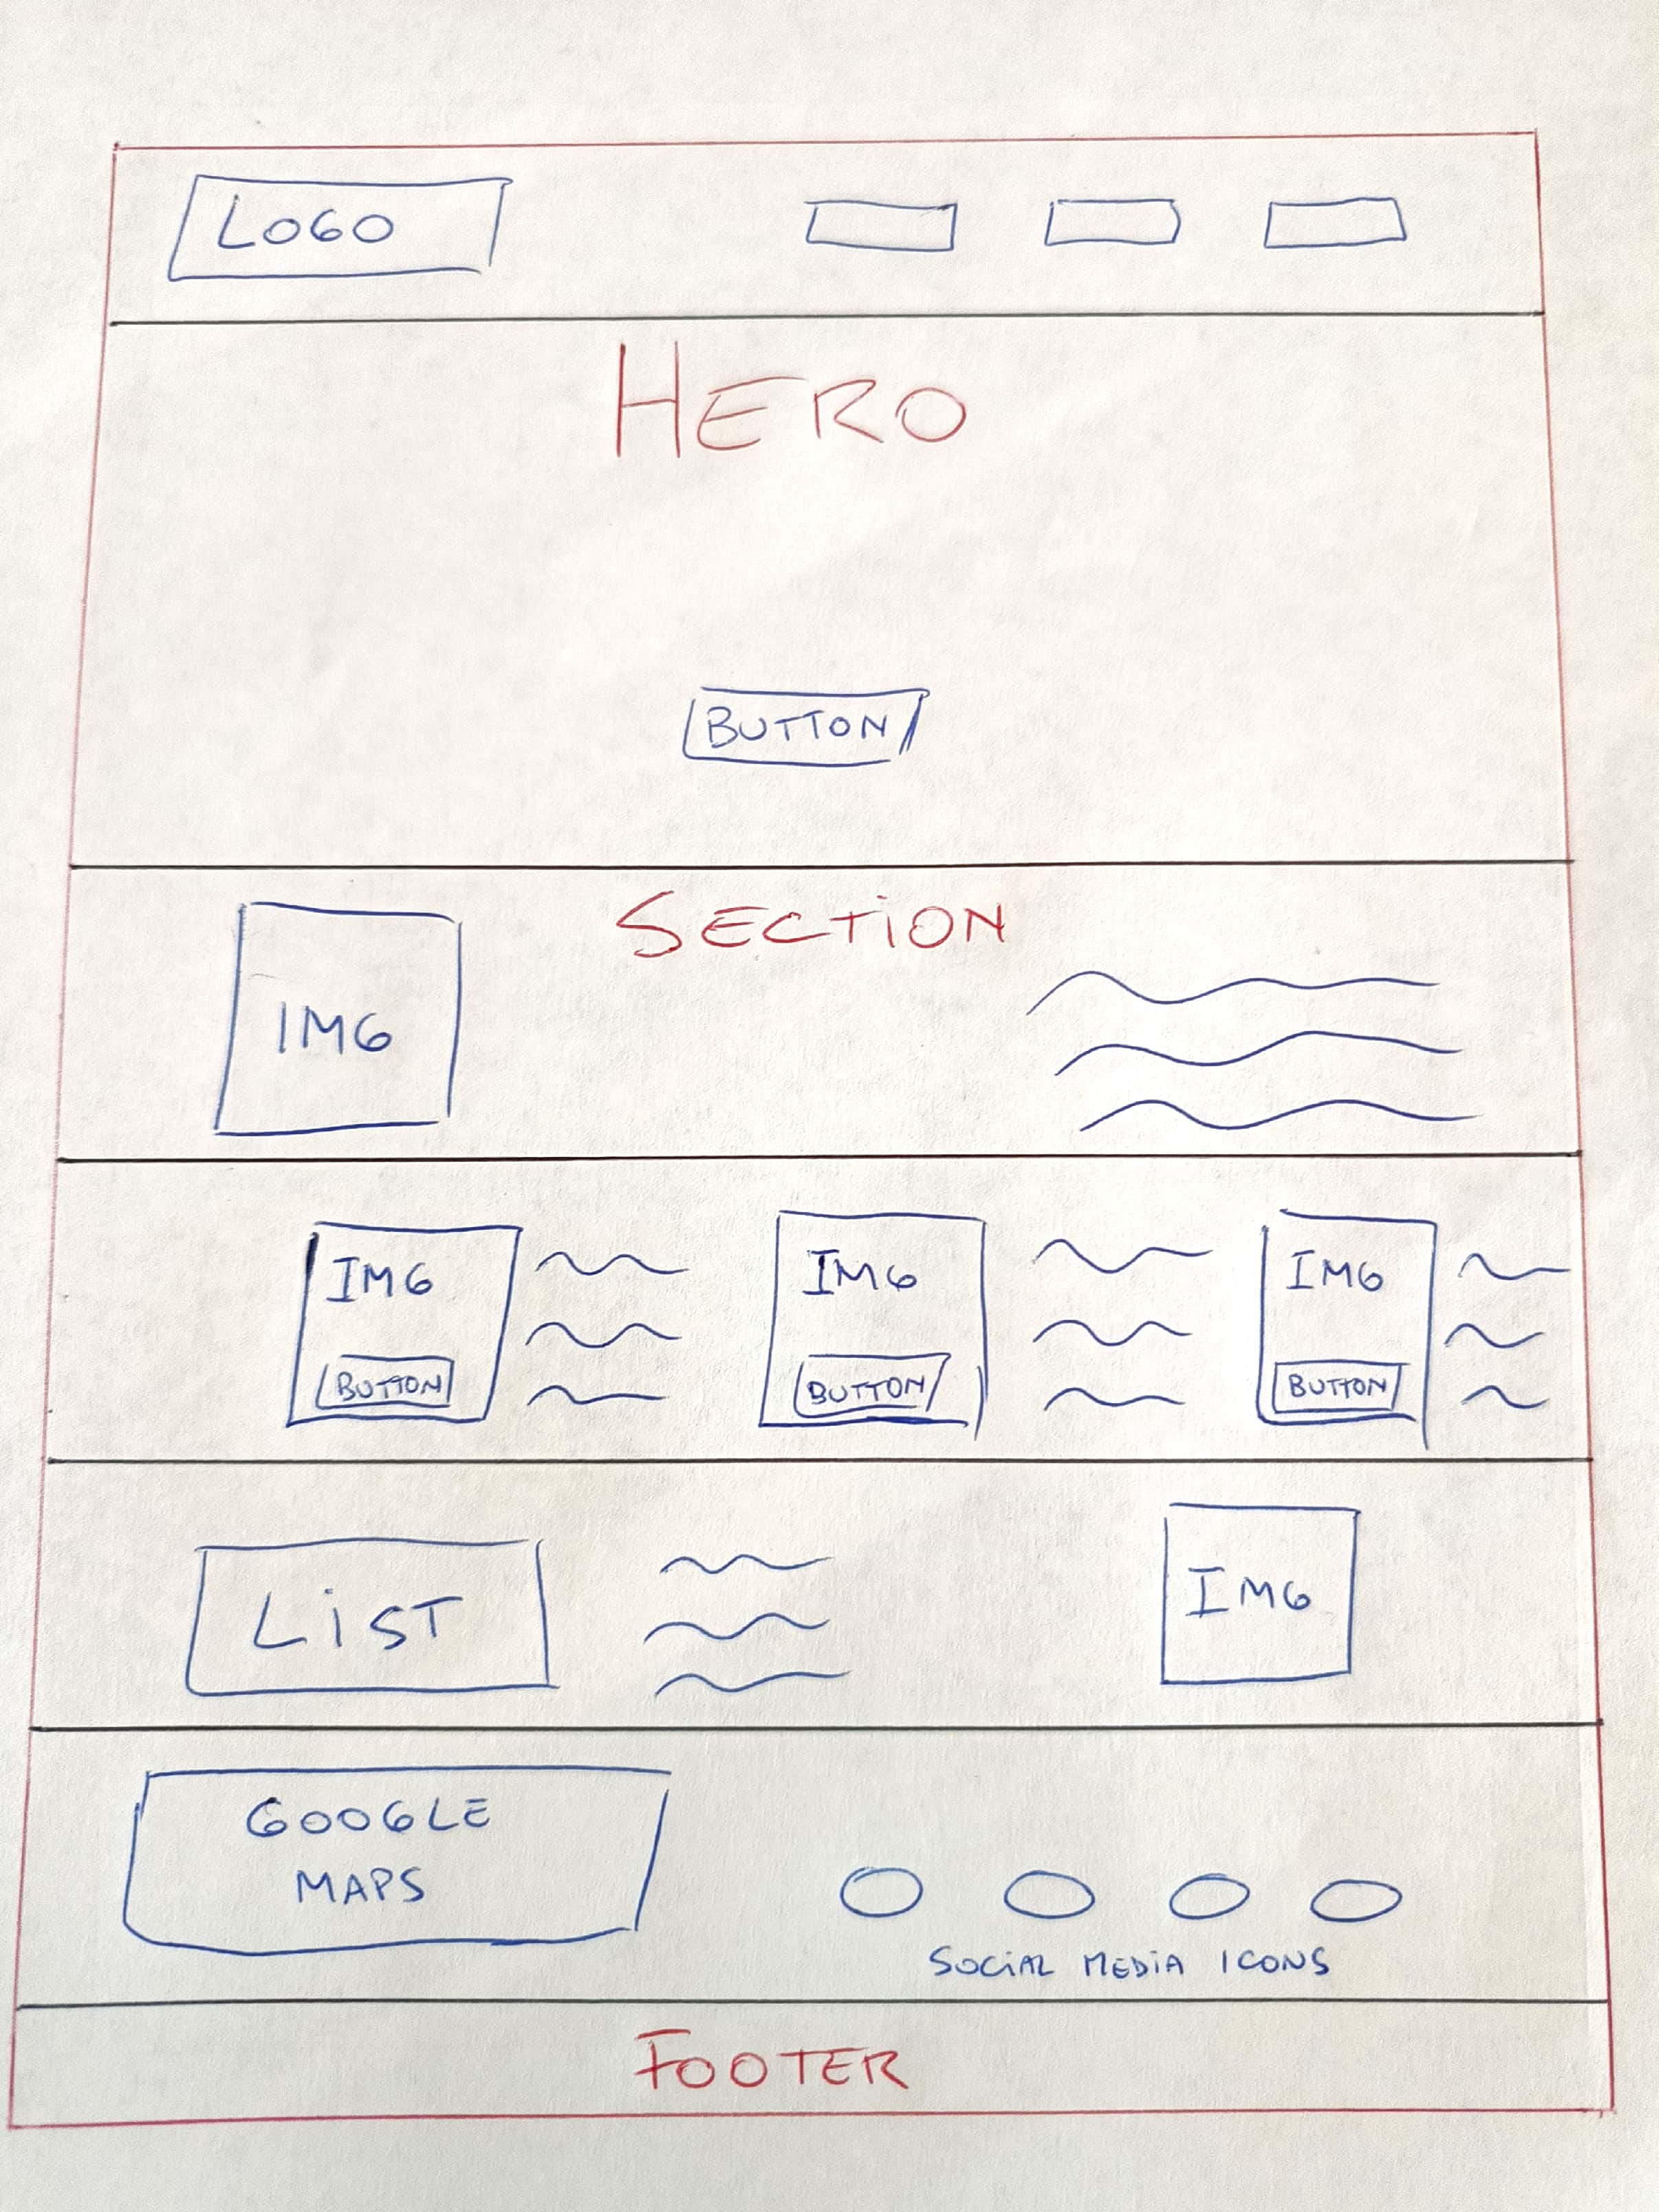 LOGO
HERO
BUTTON
SECTION
IMG
IMG
BUTTON
IMG
BUTTON
IMG
BUTTON
LIST
IMG
GOOGLE
MAPS
SOCIAL MEDIA ICONS
FOOTER